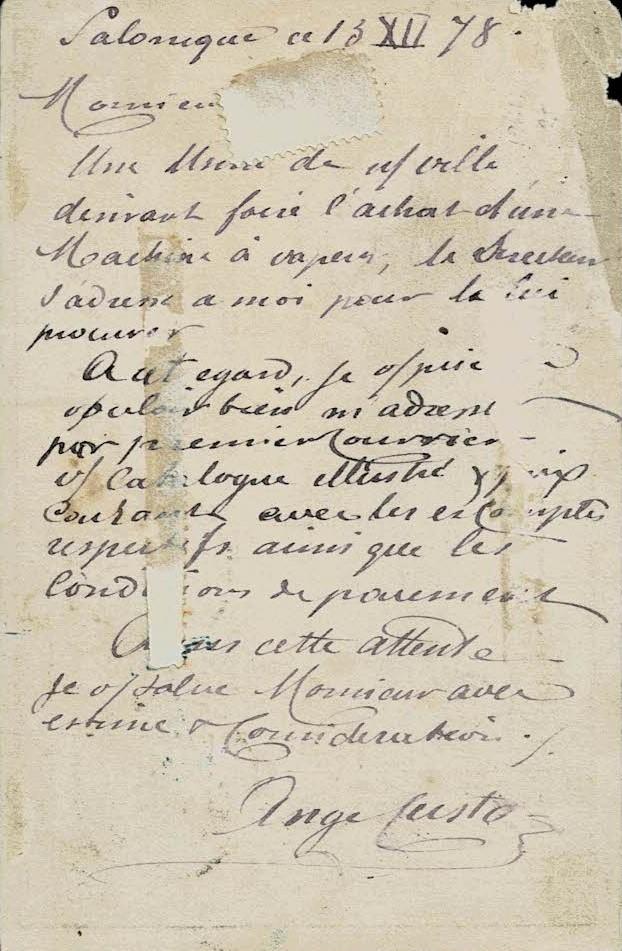 Salonique ce 13 XII 78.
Monsieur
Une Usine de n/ ville
désirant faire l'achat d'une
Machine à vapeur, le Directeur
s'adresse a moi pour la lui
procurer
A cet egard, je v/ prie
vouloir bien m'adresser
par premier Courrier
v/ Catalogue illustré & prix
courants avec les escomptes
respectifs ainsi que les
Conditions de paiement
Dans cette attente
Je v/ salue Monsieur avec
estime & Consideration.
Ange